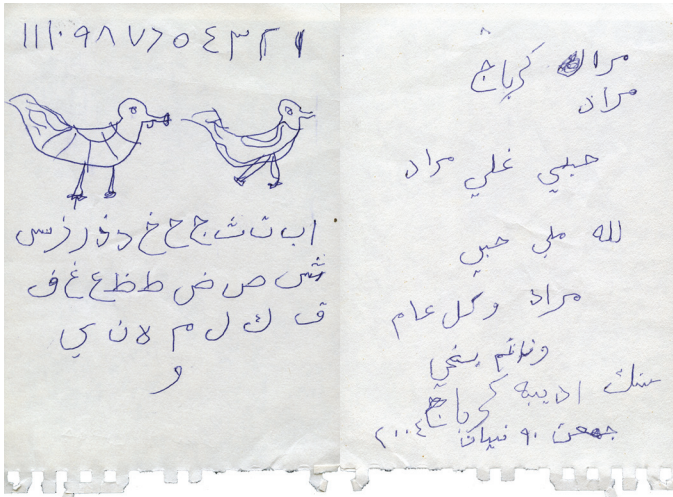 ١ ٢ ٣ ٤ ٥ ٦ ٧ ٨ ٩ ١٠ ١١
ا ب ت ث ج ح خ د ذ ر ز س
ش ص ض ط ظ ع غ ف
ق ك ل م لا ن ي
و
مراد كرباج
مراد
حبيبي غلي مراد
لله حبي
مراد وكل عام
وانتم
ستك اديبه كرباج
نيسان ٢٠٠٤